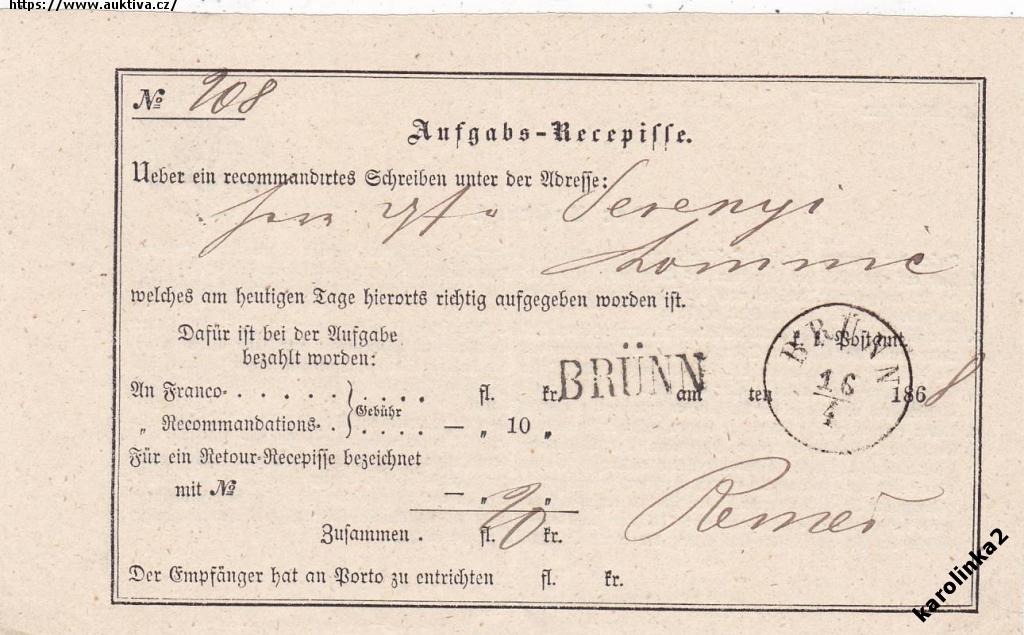 https://www.auktiva.cz/
№ 208
Aufgabs-Recepisse.
Ueber ein recommandirtes Schreiben unter der Adresse:
Serenyi
Lomnic
welches am heutigen Tage hierorts richtig aufgegeben worden ist.
Dafür ist bei der Aufgabe
bezahlt worden:
k. k. Postamt
BRÜNN
16
4
An Franco- . . . . . . . . . . fl. kr.
BRÜNN am ten 1868
Gebühr
„ Recommandations- . . . . . — „ 10 „
Für ein Retour-Recepisse bezeichnet
mit № — „ „
Zusammen . fl. 20 kr.
Der Empfänger hat an Porto zu entrichten fl. kr.
karolinka2